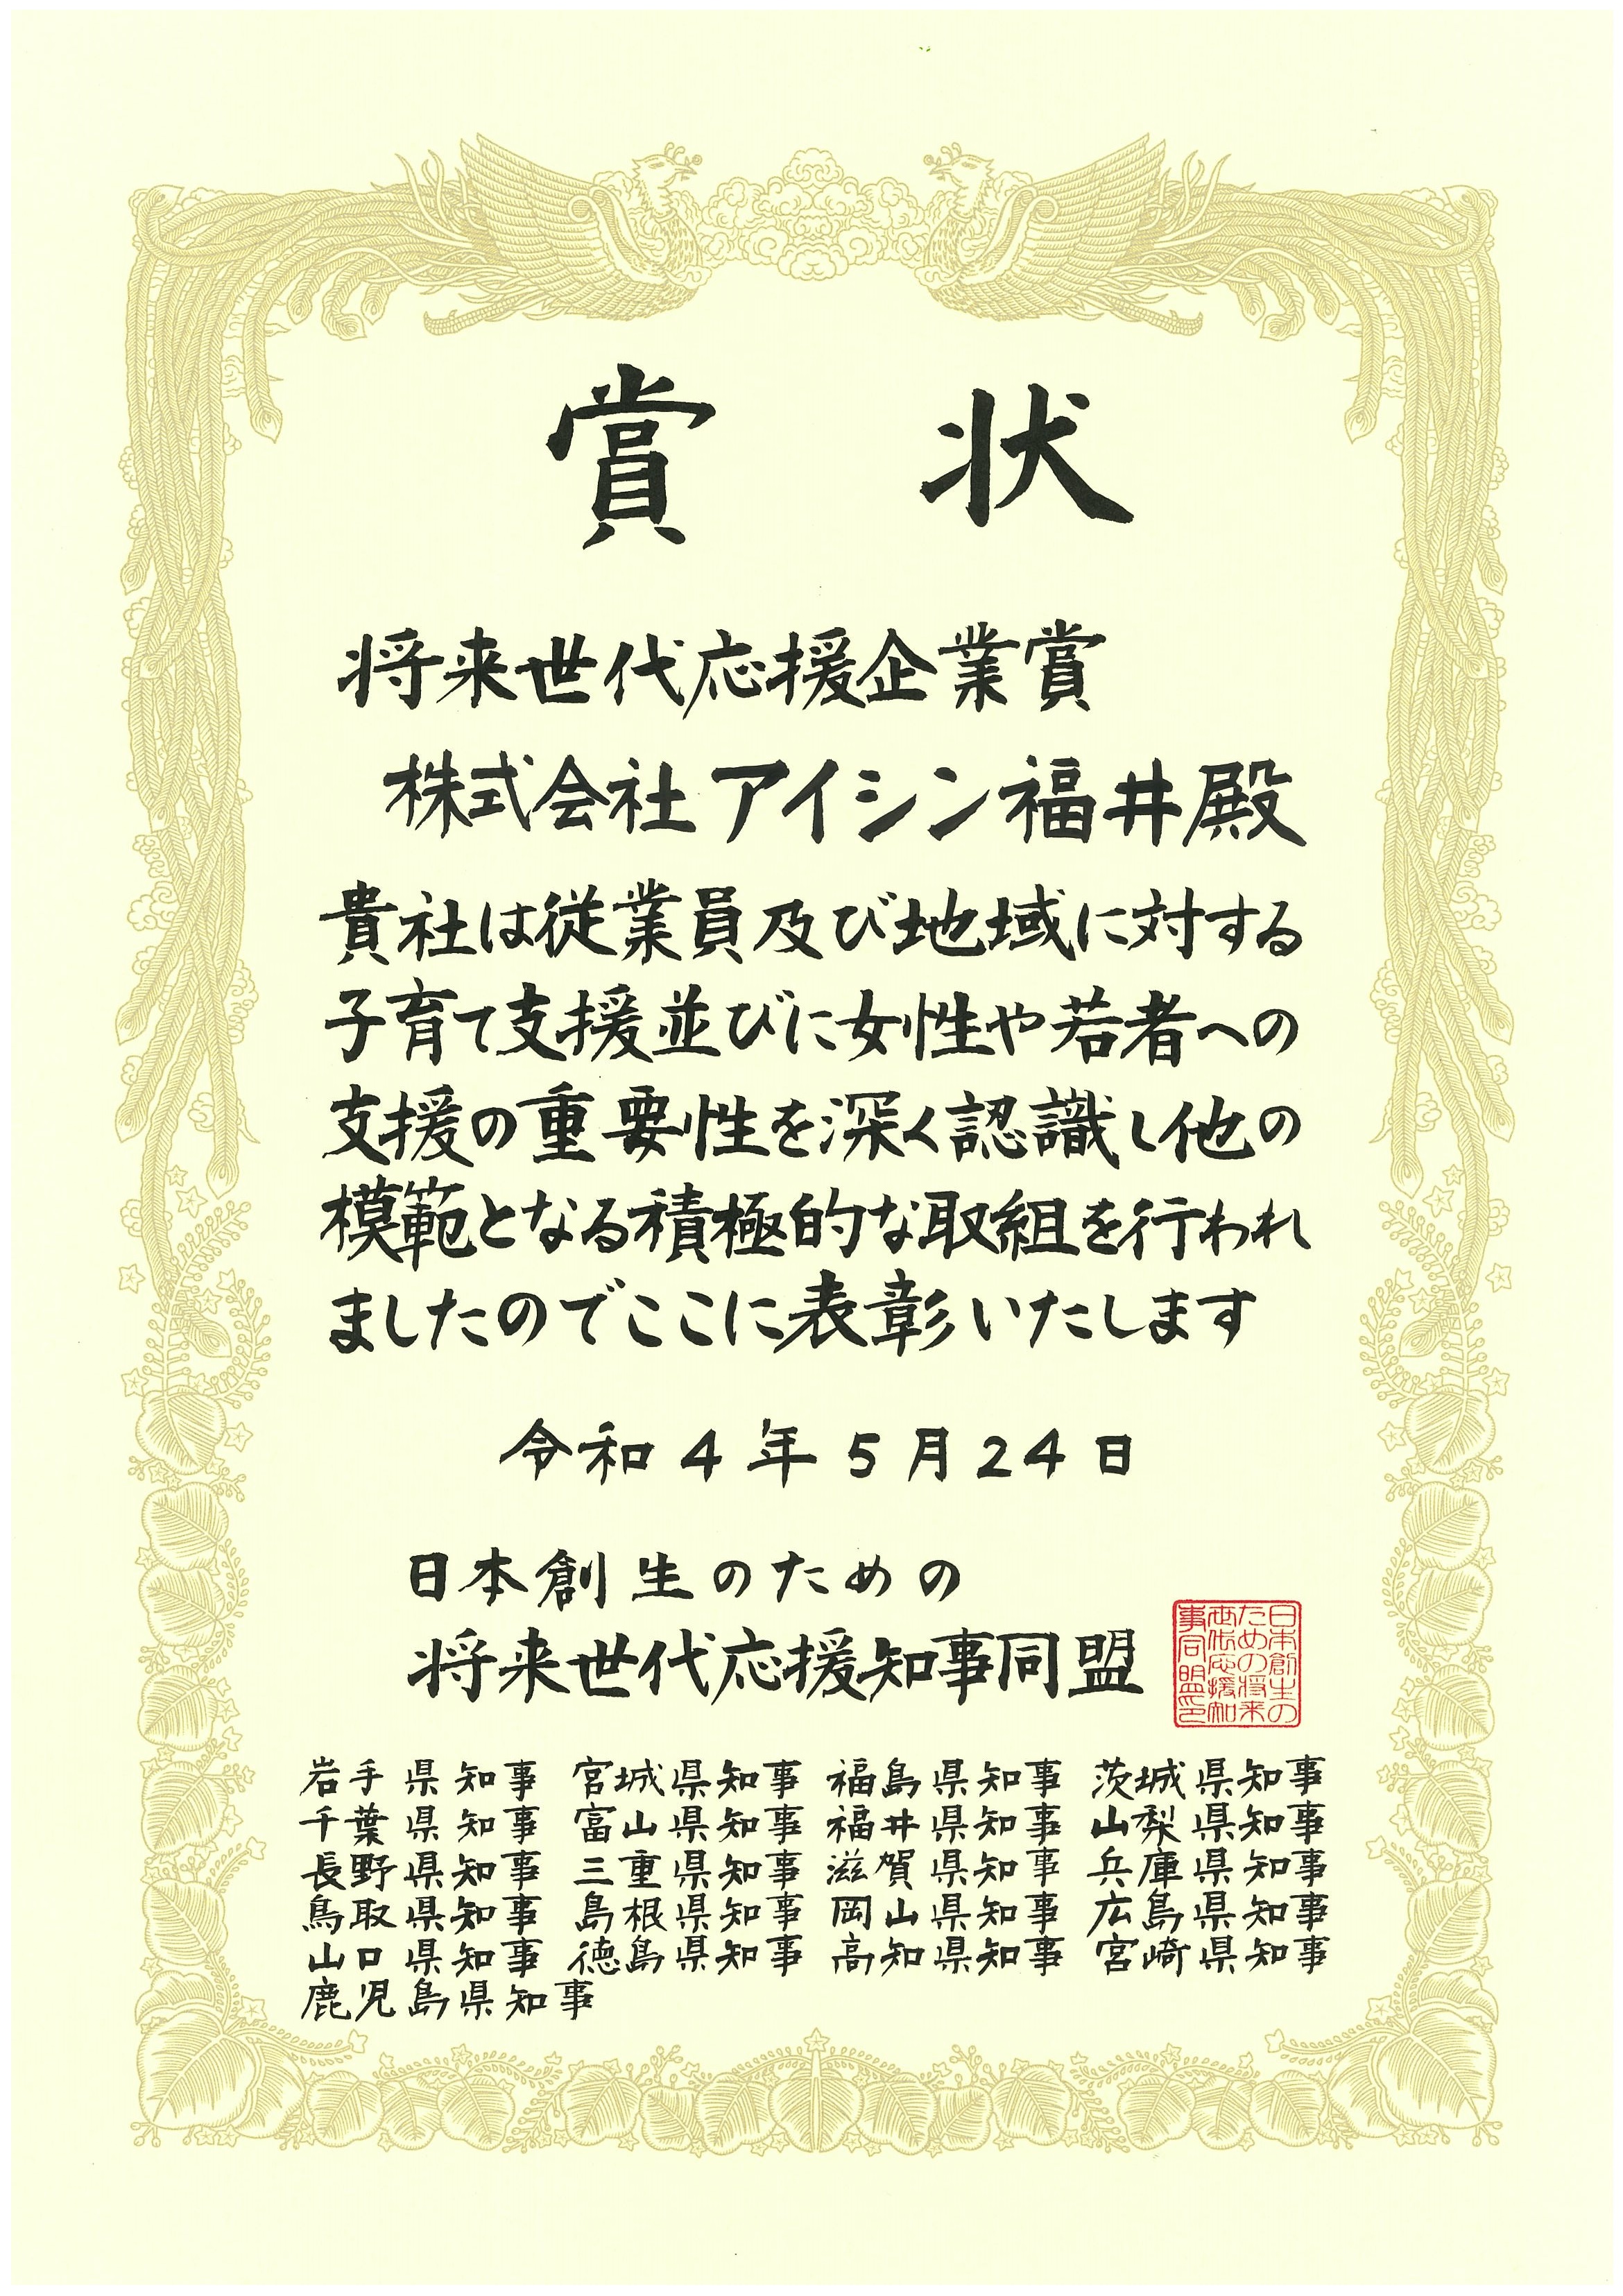 賞状
将来世代応援企業賞
株式会社アイシン福井殿
貴社は従業員及び地域に対する
子育て支援並びに女性や若者への
支援の重要性を深く認識し他の
模範となる積極的な取組を行われ
ましたのでここに表彰いたします
令和4年5月24日
日本創生のための
将来世代応援知事同盟
日本創生の
ための将来
世代応援知
事同盟印
岩手県知事 宮城県知事 福島県知事 茨城県知事
千葉県知事 富山県知事 福井県知事 山梨県知事
長野県知事 三重県知事 滋賀県知事 兵庫県知事
鳥取県知事 島根県知事 岡山県知事 広島県知事
山口県知事 徳島県知事 高知県知事 宮崎県知事
鹿児島県知事